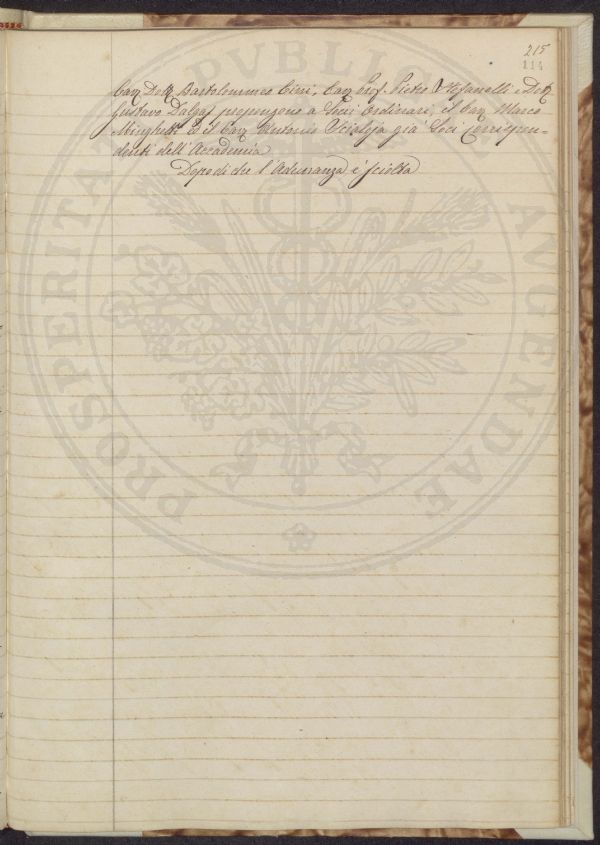 215
114
Cav. Dott. Bartolommeo Cini, Cav. Prof. Pietro Stefanelli e Dott.
Gustavo Dalgas propongono a Soci Ordinari, il Cav. Marco
Minghetti ed il Cav. Antonio Scialoja già Soci corrispon-
denti dell'Accademia
Dopo di che l'Adunanza è sciolta
PROSPERITATI PVBLICAE AVGENDAE